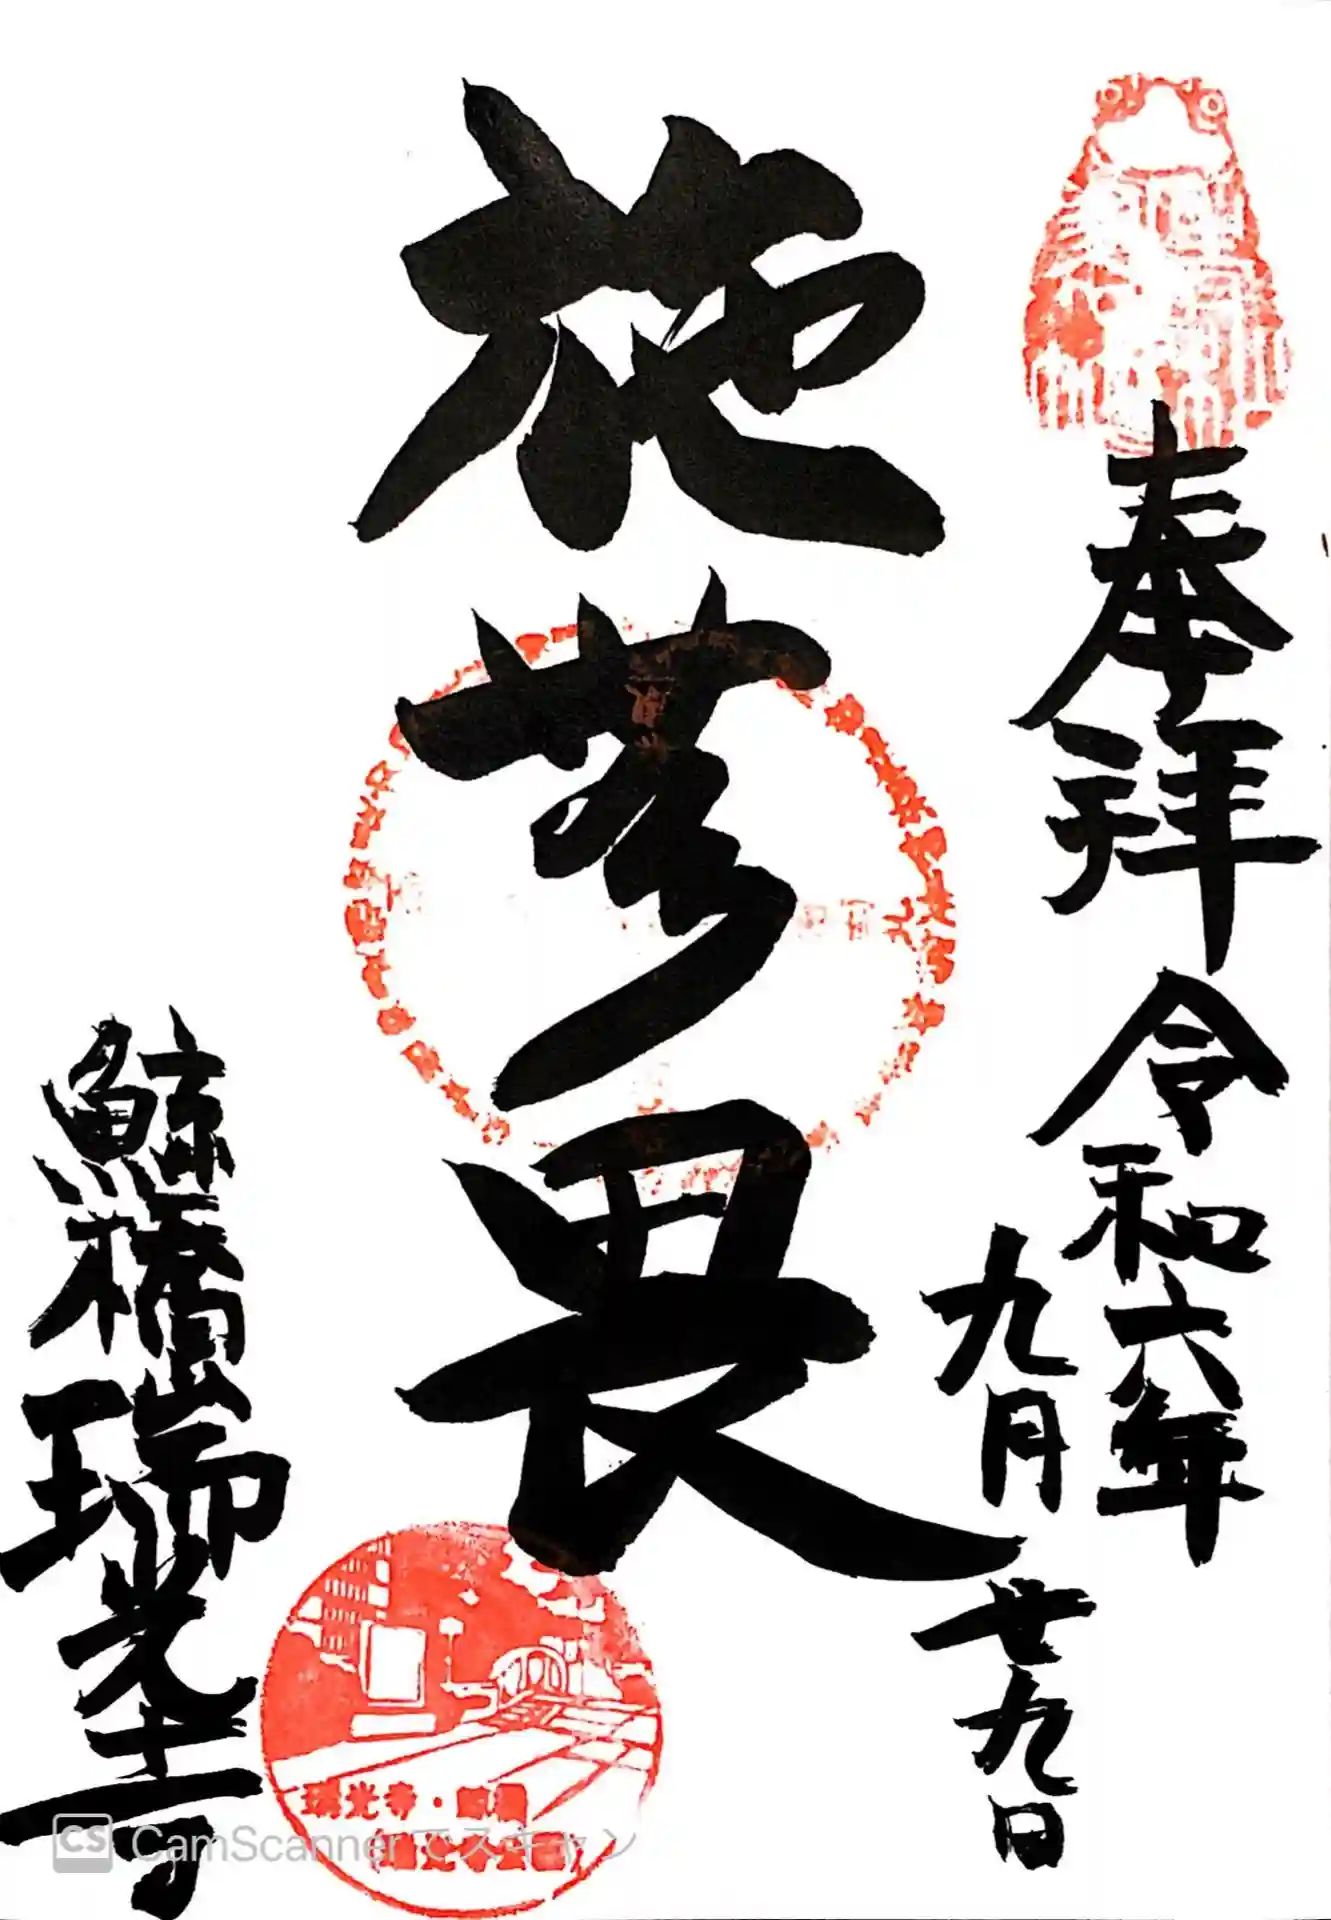 奉拝
令和六年
九月廿九日
施無畏
鯨橋山瑞光寺
瑞光寺・鯨橋
CS CamScannerでスキャン